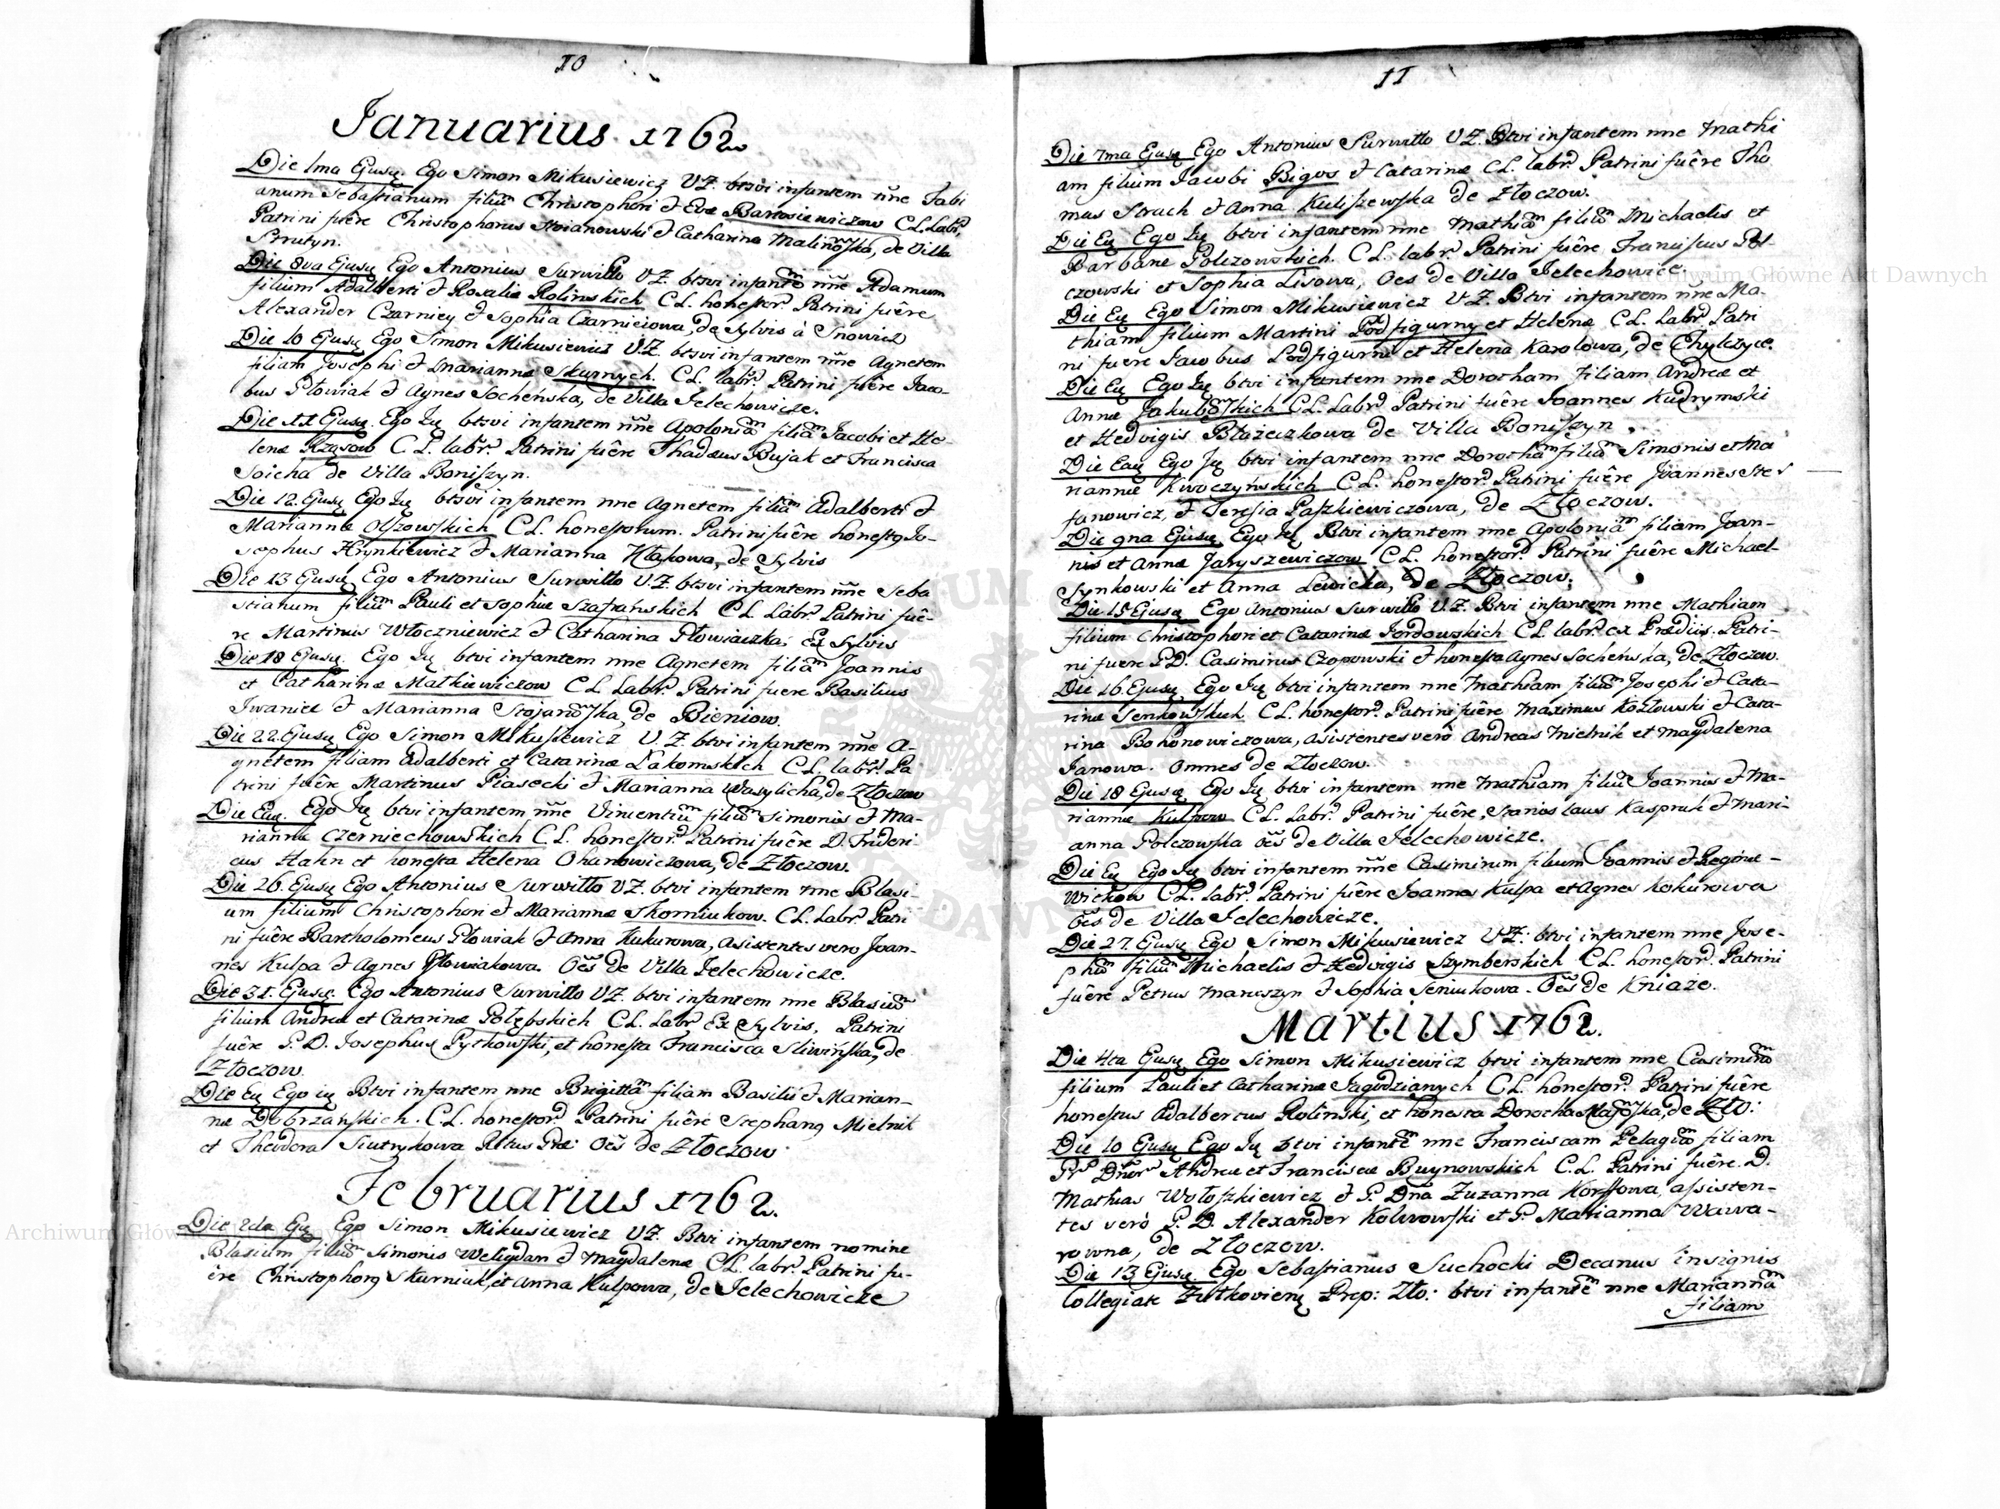 10
Januarius 1762
Die 1ma Ejusq Ego Simon Mikusiewicz VZ. btsvi infantem nne Fabi
anum Sebastianum filium Christophori & Evæ Bartosiewiczow CL. Labr.
Patrini fuêre Christophorus Stoianowski & Catharina Malinoska, de Villa
Strutyn.
Die 8va Ejusq Ego Antonius Surwiłło VZ. btsvi infantē nne Adamum
filium Adalberti & Rosaliæ Rolinskich CL. honestor. Patrini fuêre
Alexander Czarniey & Sophia Czarnieiowa, de Sylvis à Snowicz
Die 10 Ejusq Ego Simon Mikusiewicz VZ. btsvi infantem nne Agnetem
filiam Josephi & Mariannæ Skurnych. CL. labr. Patrini fuêre Jaco-
bus Płowiak & Agnes Socheńska, de Villa Jelechowicze.
Die 11 Ejusq. Ego Jq btsvi infantem nne Apoloniam filiam Jacobi et He-
lenæ Rząsow CL. labr. Patrini fuêre Thadæus Bujak et Francisca
Soicha de Villa Boniszyn.
Die 12. Ejusq Ego Jq btsvi infantem nne Agnetem filiam Adalberti &
Mariannæ Olszowskich CL. honestorum. Patrini fuêre honestq Jo-
sephus Hrynkiewicz & Marianna Hłakowa, de Sylvis
Die 13 Ejusq Ego Antonius Surwiłło VZ. btsvi infantem nne Seba
stianum filium Pauli et Sophiæ Szafrańskich CL Labr. Patrini fuê-
re Martinus Włoczniewicz & Catharina Płowiaczka, Ex Sylvis
Die 18 Ejusq. Ego Jq btvi infantem nne Agnetem filiam Joannis
et Catharinæ Matkiewiczow CL Labr. Patrini fuere Basilius
Jwaniec & Marianna Stojanoska, de Bieniow.
Die 22. Ejusq Ego Simon Mikusiewicz VZ. btvi infantem nne A-
gnetem filiam Adalberti et Catarinæ Łakomskich CL. labr. Pa
trini fuêre Martinus Piasecki & Marianna Wasylicha, de Złoczow
Die Eaq. Ego Jq btvi infantem nne Vincentium filium Simonis & Ma-
riannæ Czerniechowskich CL. honestor. Patrini fuêre D. Frideri
cus Hahn et honesta Helena Ohanowiczowa, de Złoczow.
Die 26. Ejusq Ego Antonius Surwiłło VZ. btvi infantem nne Blasi-
um filium Christophori & Mariannæ Skorniukow. CL. Labr. Patri
ni fuêre Bartholomeus Płowiak & Anna Kukurowa, asistentes vero Joan-
nes Kulpa & Agnes Płowiakowa. Oēs de Villa Jelechowicze.
Die 31. Ejusq. Ego Antonius Surwiłło VZ. btvi infantem nne Blasium
filium Andreæ et Catarinæ Połębskich CL. Labr Ex Sylvis, Patrini
fuêre P. D. Josephus Pytkowski, et honesta Francisca Sliwińska, de
Złoczow.
Die Eq Ego iq Btvi infantem nne Brigittam filiam Basilii & Marian-
næ Dobrzańskich. CL. honestor. Patrini fuêre Stephanq Mielnik
et Theodora Siutrykowa Ritus Græ: Oēs de Złoczow.
Februarius 1762.
Die 2da Eq Ego Simon Mikusiewicz VZ. Btvi infantem nomine
Blasium filium Simonis Weligdan & Magdalenæ CL. labr. Patrini fu-
êre Christophorq Skurniuk, et Anna Kulpowa, de Jelechowicze
11
Die 7ma Ejusq Ego Antonius Surwiłło VZ. Btvi infantem nne Mathi
am filium Jacobi Bigos & Catarinæ CL. labr. Patrini fuêre Tho
mas Struch & Anna Kuliszewska de Złoczow.
Die Eq Ego Jq btvi infantem nne Mathiam filium Michaelis et
Barbaræ Polczowskich. CL. labr. Patrini fuêre Franciscus Pol-
czowski et Sophia Lisowa, Oes de Villa Jelechowice.
Die Eq Ego Simon Mikusiewicz VZ. Btvi infantem nne Ma-
thiam filium Martini Podfigurny et Helenæ CL. Labr. Patri
ni fuere Jacobus Podfigurni et Helena Karolowa, de Chylczyce.
Die Eq Ego Jq btvi infantem nne Dorotham filiam Andreæ et
Annæ Jakuboskich CL. Labr. Patrini fuêre Joannes Kudrymski
et Hedvigis Błażeczkowa de Villa Boniszyn.
Die Eaq Ego Jq btvi infantem nne Dorotham filiam Simonis et Ma
riannæ Kwoczyńskich CL. honestor. Patrini fuêre Joannes Ste
fanowicz, & Teresia Paszkiewiczowa, de Złoczow.
Die 9na Ejusq Ego Jq Btvi infantem nne Apoloniam filiam Joan-
nis et Annæ Jaryszewiczow CL. honestor. Patrini fuêre Michael-
Synkowski et Anna Lewicka, de Złoczow.
Die 15 Ejusq Ego Antonius Surwiłło VZ. Btvi infantem nne Mathiam
filium Christophori et Catarinæ Jordowskich CL. labr. ex Prædiis. Patri-
ni fuere P. D. Casimirus Czopowski & honesta Agnes Sochenska, de Złoczow.
Die 16 Ejusq Ego Jq btvi infantem nne Mathiam filium Josephi & Cata-
rinæ Senkowskich CL. honestor. Patrini fuêre Maximus Kozłowski & Cata-
rina Bohonowiczowa, asistentes verò Andreas Mielnik et Magdalena
Janowa. Omnes de Złoczow.
Die 18 Ejusq Ego Jq btvi infantem nne Mathiam filium Joannis & Ma-
riannæ Kulpow CL. Labr. Patrini fuêre, Stanislaus Kaspruk & Mari-
anna Polczowska Oēs de Villa Jelechowicze.
Die Eq Ego Jq btvi infantem nne Casimirum filium Joannis & Reginæ-
Wickow CL. labr. Patrini fuêre Joannes Kulpa et Agnes Kokurowa
Oēs de Villa Jelechowicze.
Die 27. Ejusq Ego Simon Mikusiewicz VZ: btvi infantem nne Jose-
phum filium Michaelis & Hedvigis Szymberskich CL. honestor. Patrini
fuêre Petrus Maruszyn & Sophia Seniukowa. Oēs de Kniaże.
Martius 1762.
Die 4ta Ejusq Ego Simon Mikusiewicz btvi infantem nne Casimirum
filium Pauli et Catharinæ Jagodzianych CL. honestor. Patrini fuêre
honestus Adalbertus Rolinski, et honesta Dorotha Majoska, de Zło:
Die 10 Ejusq Ego Jq Btvi infantē nne Franciscam Pelagiam filiam
Pr. Dnor. Andreæ et Franciscæ Buynowskich C. L. Patrini fuêre. D.
Mathias Wołoszkiewicz & P. Dna Zuzanna Korffowa, assisten-
tes verò P. D. Alexander Kolwowski et P. Marianna Wawa-
rowna, de Złoczow.
Die 13 Ejusq. Ego Sebastianus Suchocki Decanus insignis
Collegiatæ Żułkoviensq Præp: Zło: btvi infantē nne Mariannam
filiam
ARCHIWUM GŁÓWNE AKT DAWNYCH
Archiwum Główne Akt Dawnych
Archiwum Główne Akt Dawnych